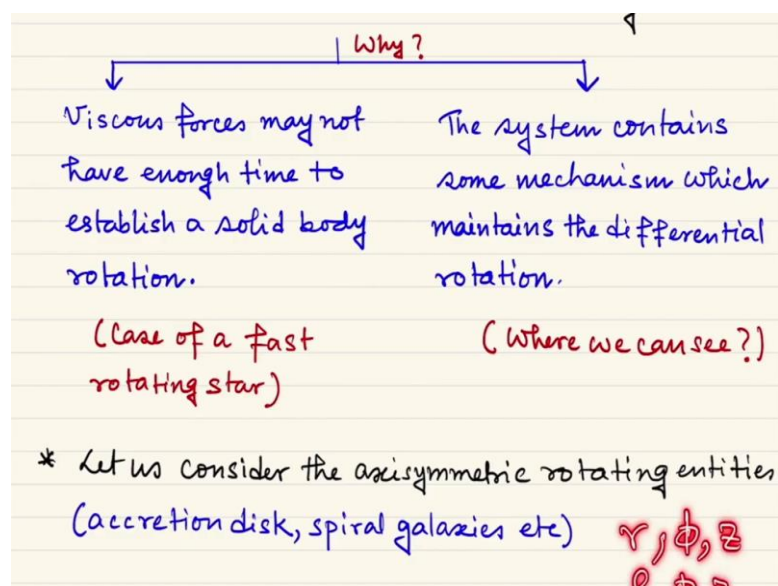 Why?
Viscous forces may not
have enough time to
establish a solid body
rotation.
(Case of a fast
rotating star)
The system contains
some mechanism which
maintains the differential
rotation.
(Where we can see?)
* Let us consider the axisymmetric rotating entities
(accretion disk, spiral galaxies etc)
r, ϕ, z